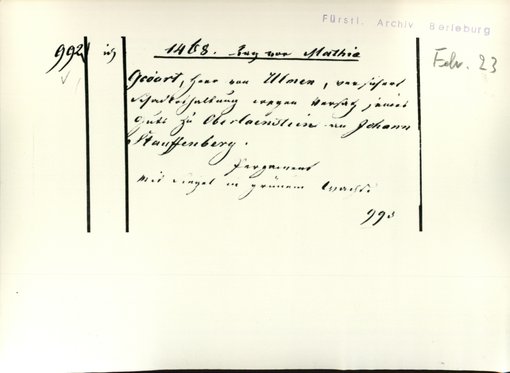 Fürstl. Archiv Berleburg
992 1468. Tag vor Mathie Febr. 23
Godart, Herr von Ulmen, versichert
Schadloshaltung wegen Versatz seines
Guts zu Oberlaenstein an Johann
Stauffenberg.
Pergament
Mit Siegel in grünem Wachs.
993